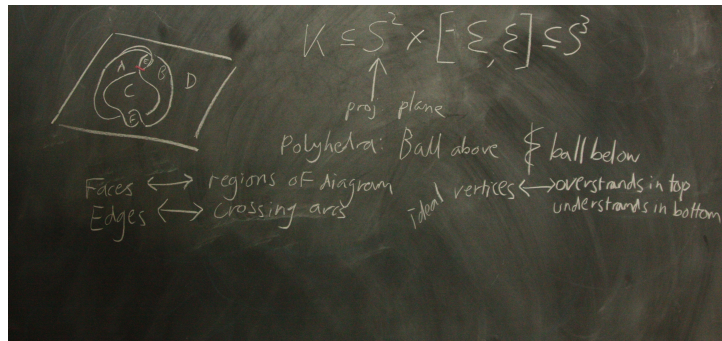 K ⊆ S² × [-ε, ε] ⊆ S³
A E B D
C
F
proj plane
Polyhedra: Ball above & ball below
Faces ↔ regions of diagram
Edges ↔ crossing arcs
ideal vertices ↔ overstrands in top
understrands in bottom